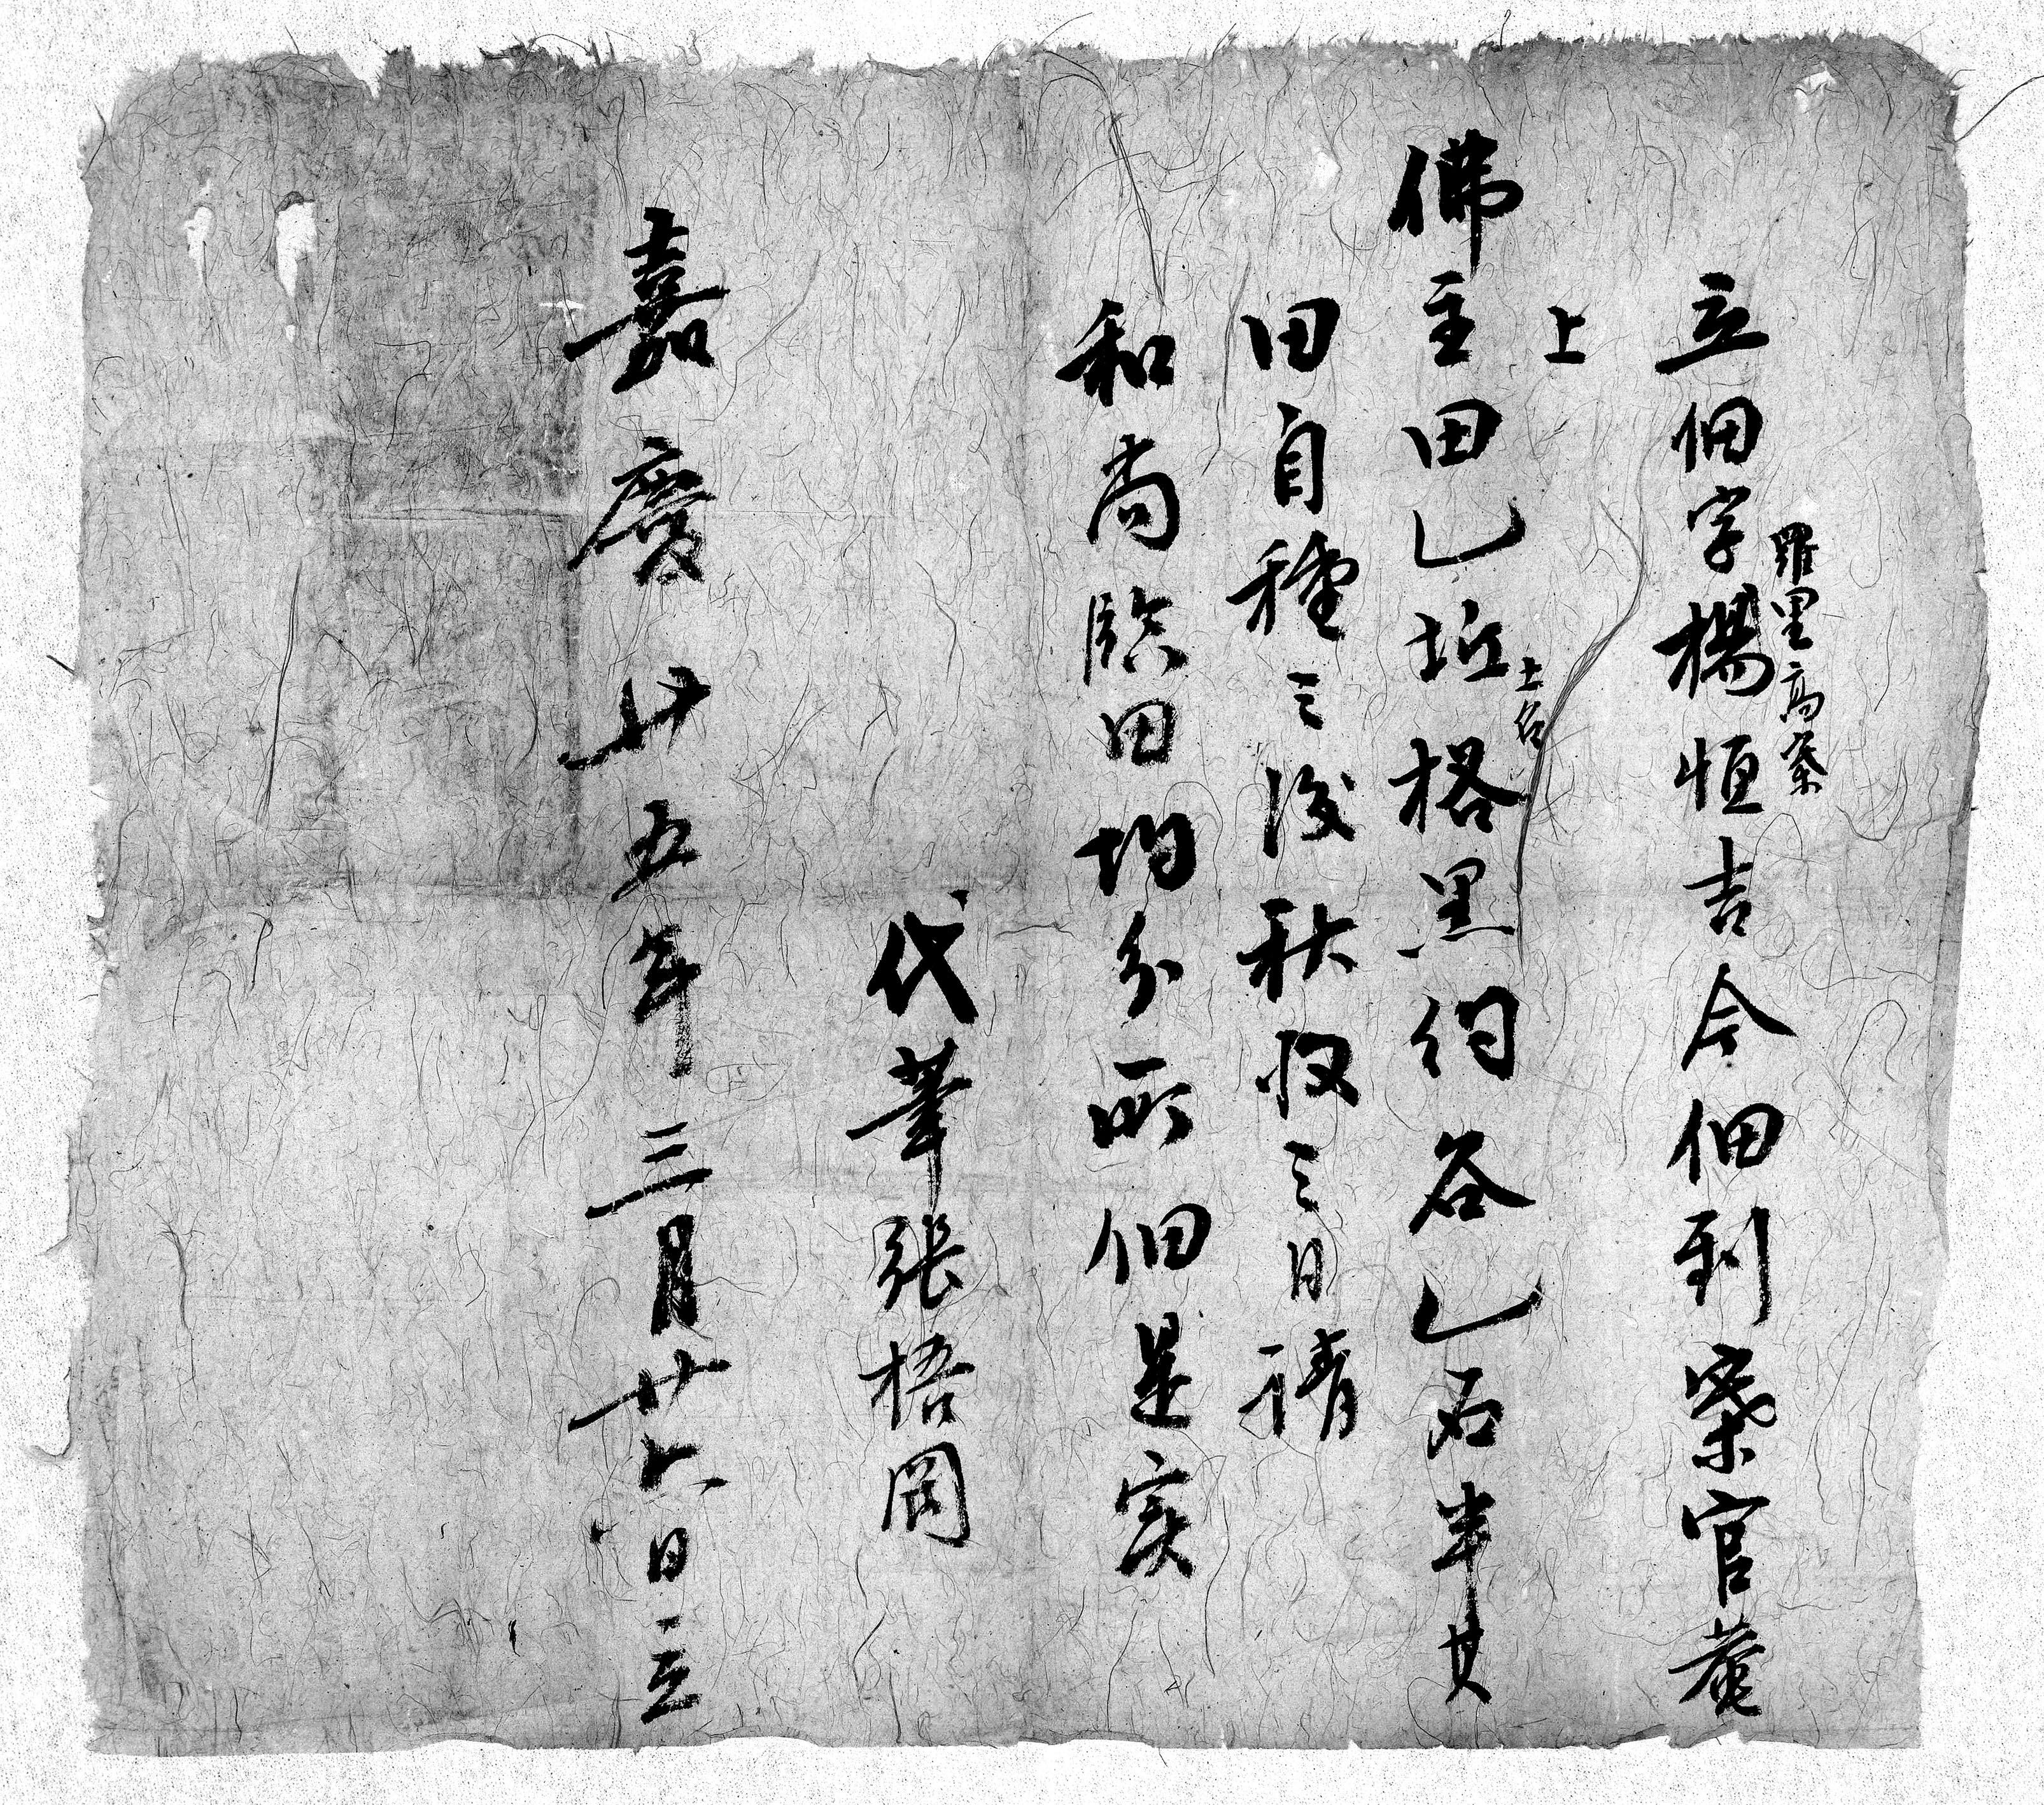 立佃字楊恒吉今佃到寨官菴
羅里高寨
上
佛主田乚坵格黑约谷乚石半其
土名
田自種之後秋收之日請
和尚臨田均分所佃是实
代筆張梧岡
嘉慶廿五年三月廿六日立